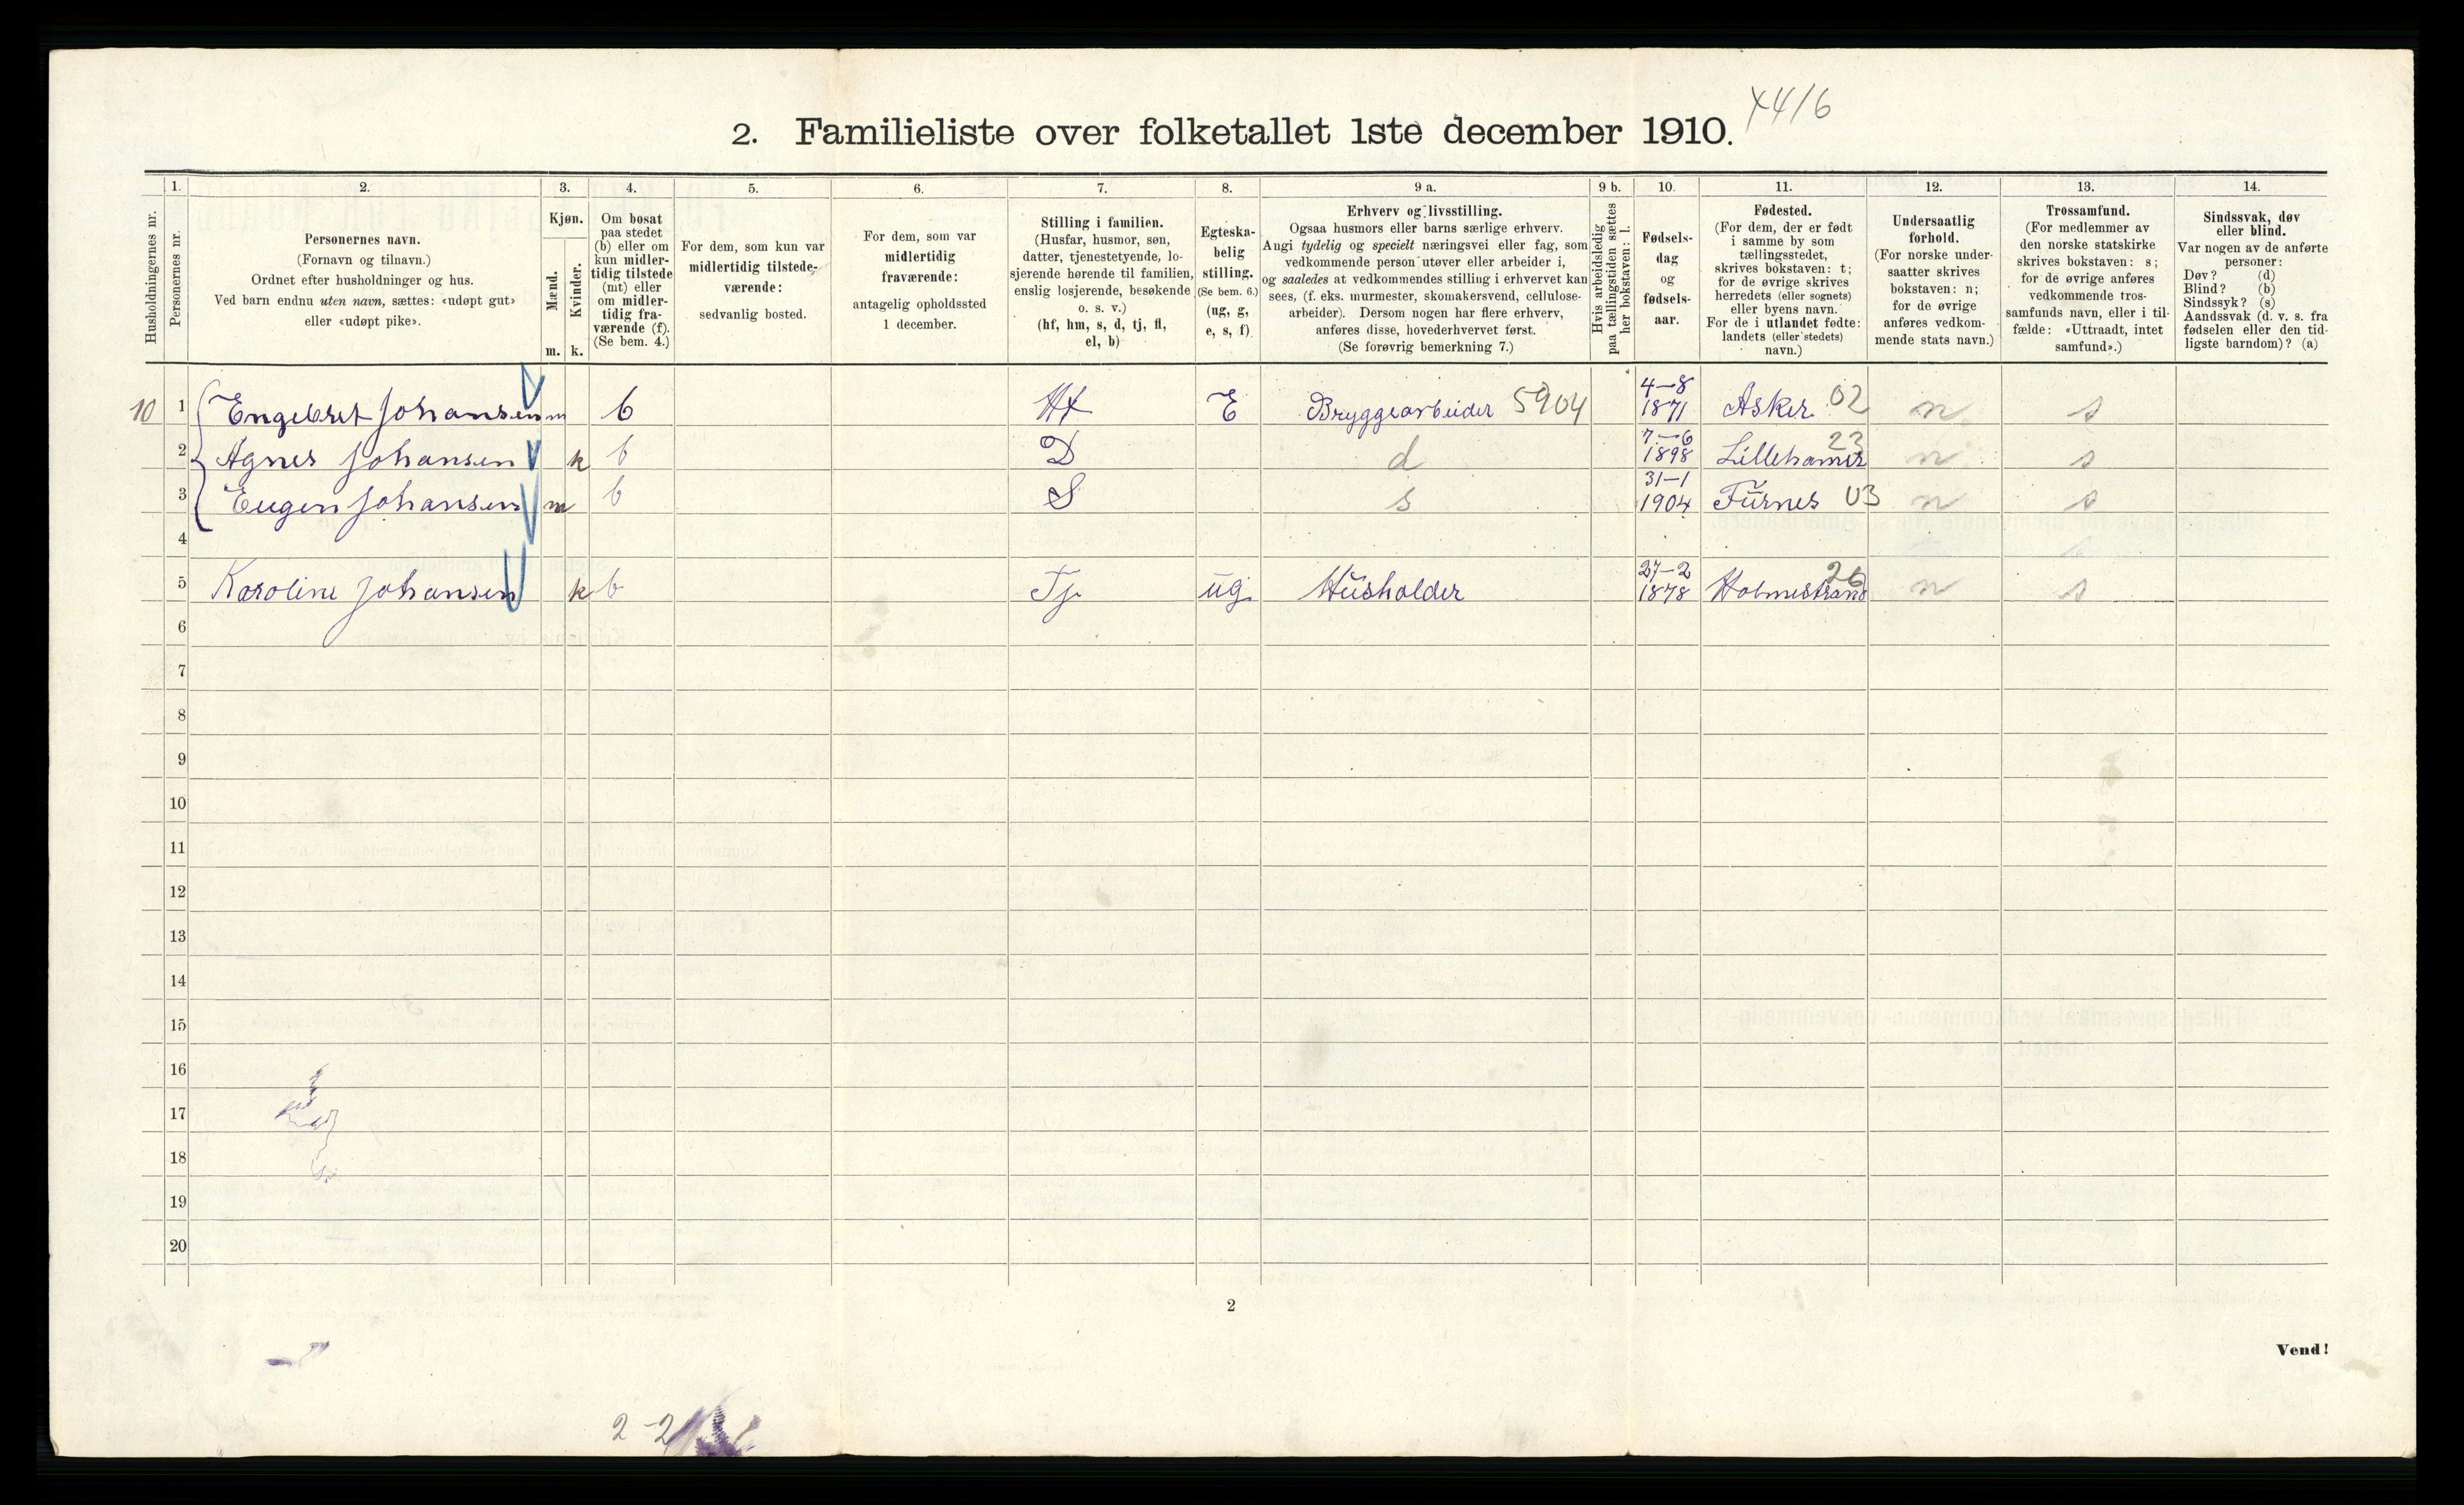 2. Familieliste over folketallet 1ste december 1910.
1. 2. 3. 4. 5. 6. 7. 8. 9 a. 9 b. 10. 11. 12. 13. 14.
Husholdningernes nr.
Personernes nr.
Personernes navn.
(Fornavn og tilnavn.)
Ordnet efter husholdninger og hus.
Ved barn endnu uten navn, sættes: «udøpt gut»
eller «udøpt pike».
Kjøn.
Mænd.
Kvinder.
m. k.
Om bosat
paa stedet
(b) eller om
kun midler-
tidig tilstede
(mt) eller
om midler-
tidig fra-
værende (f).
(Se bem. 4.)
For dem, som kun var
midlertidig tilstede-
værende:
sedvanlig bosted.
For dem, som var
midlertidig
fraværende:
antagelig opholdssted
1 december.
Stilling i familien.
(Husfar, husmor, søn,
datter, tjenestetyende, lo-
sjerende hørende til familien,
enslig losjerende, besøkende
o. s. v.)
(hf, hm, s, d, tj, fl,
el, b)
Egteska-
belig
stilling.
(Se bem. 6.)
(ug, g,
e, s, f)
Erhverv og livsstilling.
Ogsaa husmors eller barns særlige erhverv.
Angi tydelig og specielt næringsvei eller fag, som
vedkommende person utøver eller arbeider i,
og saaledes at vedkommendes stilling i erhvervet kan
sees, (f. eks. murmester, skomakersvend, cellulose-
arbeider). Dersom nogen har flere erhverv,
anføres disse, hovederhvervet først.
(Se forøvrig bemerkning 7.)
Hvis arbeidsledig
paa tællingstiden sættes
her bokstaven: l.
Fødsels-
dag
og
fødsels-
aar.
Fødested.
(For dem, der er født
i samme by som
tællingsstedet,
skrives bokstaven: t;
for de øvrige skrives
herredets (eller sognets)
eller byens navn.
For de i utlandet fødte:
landets (eller stedets)
navn.)
Undersaatlig
forhold.
(For norske under-
saatter skrives
bokstaven: n;
for de øvrige
anføres vedkom-
mende stats navn.)
Trossamfund.
(For medlemmer av
den norske statskirke
skrives bokstaven: s;
for de øvrige anføres
vedkommende tros-
samfunds navn, eller i til-
fælde: «Uttraadt, intet
samfund».)
Sindssvak, døv
eller blind.
Var nogen av de anførte
personer:
Døv? (d)
Blind? (b)
Sindssyk? (s)
Aandssvak (d. v. s. fra
fødselen eller den tid-
ligste barndom)? (a)
10 1 Engebret Johansen m b Hf E Bryggearbeider 5904 4-8 1871 Asker 02 n s
2 Agnes Johansen k b D d 7-6 1898 Lillehamer 23 n s
3 Eugen Johansen m b S s 31-1 1904 Furnes 03 n s
4
5 Karoline Johansen k b Tj ug. Husholder 27-2 1878 Holmestrand 26 n s
6
7
8
9
10
11
12
13
14
15
16
17
18
19
20
2
Vend!
2-2